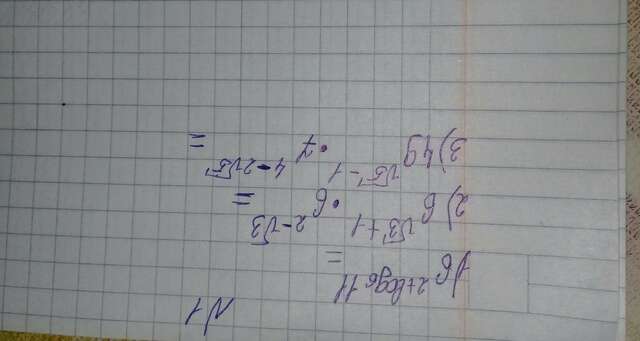 N1
1) 6^{2+log_6 11} =
2) 6^{√3+1} · 6^{2-√3} =
3) 49^{√5-1} · 7^{4-2√5} =